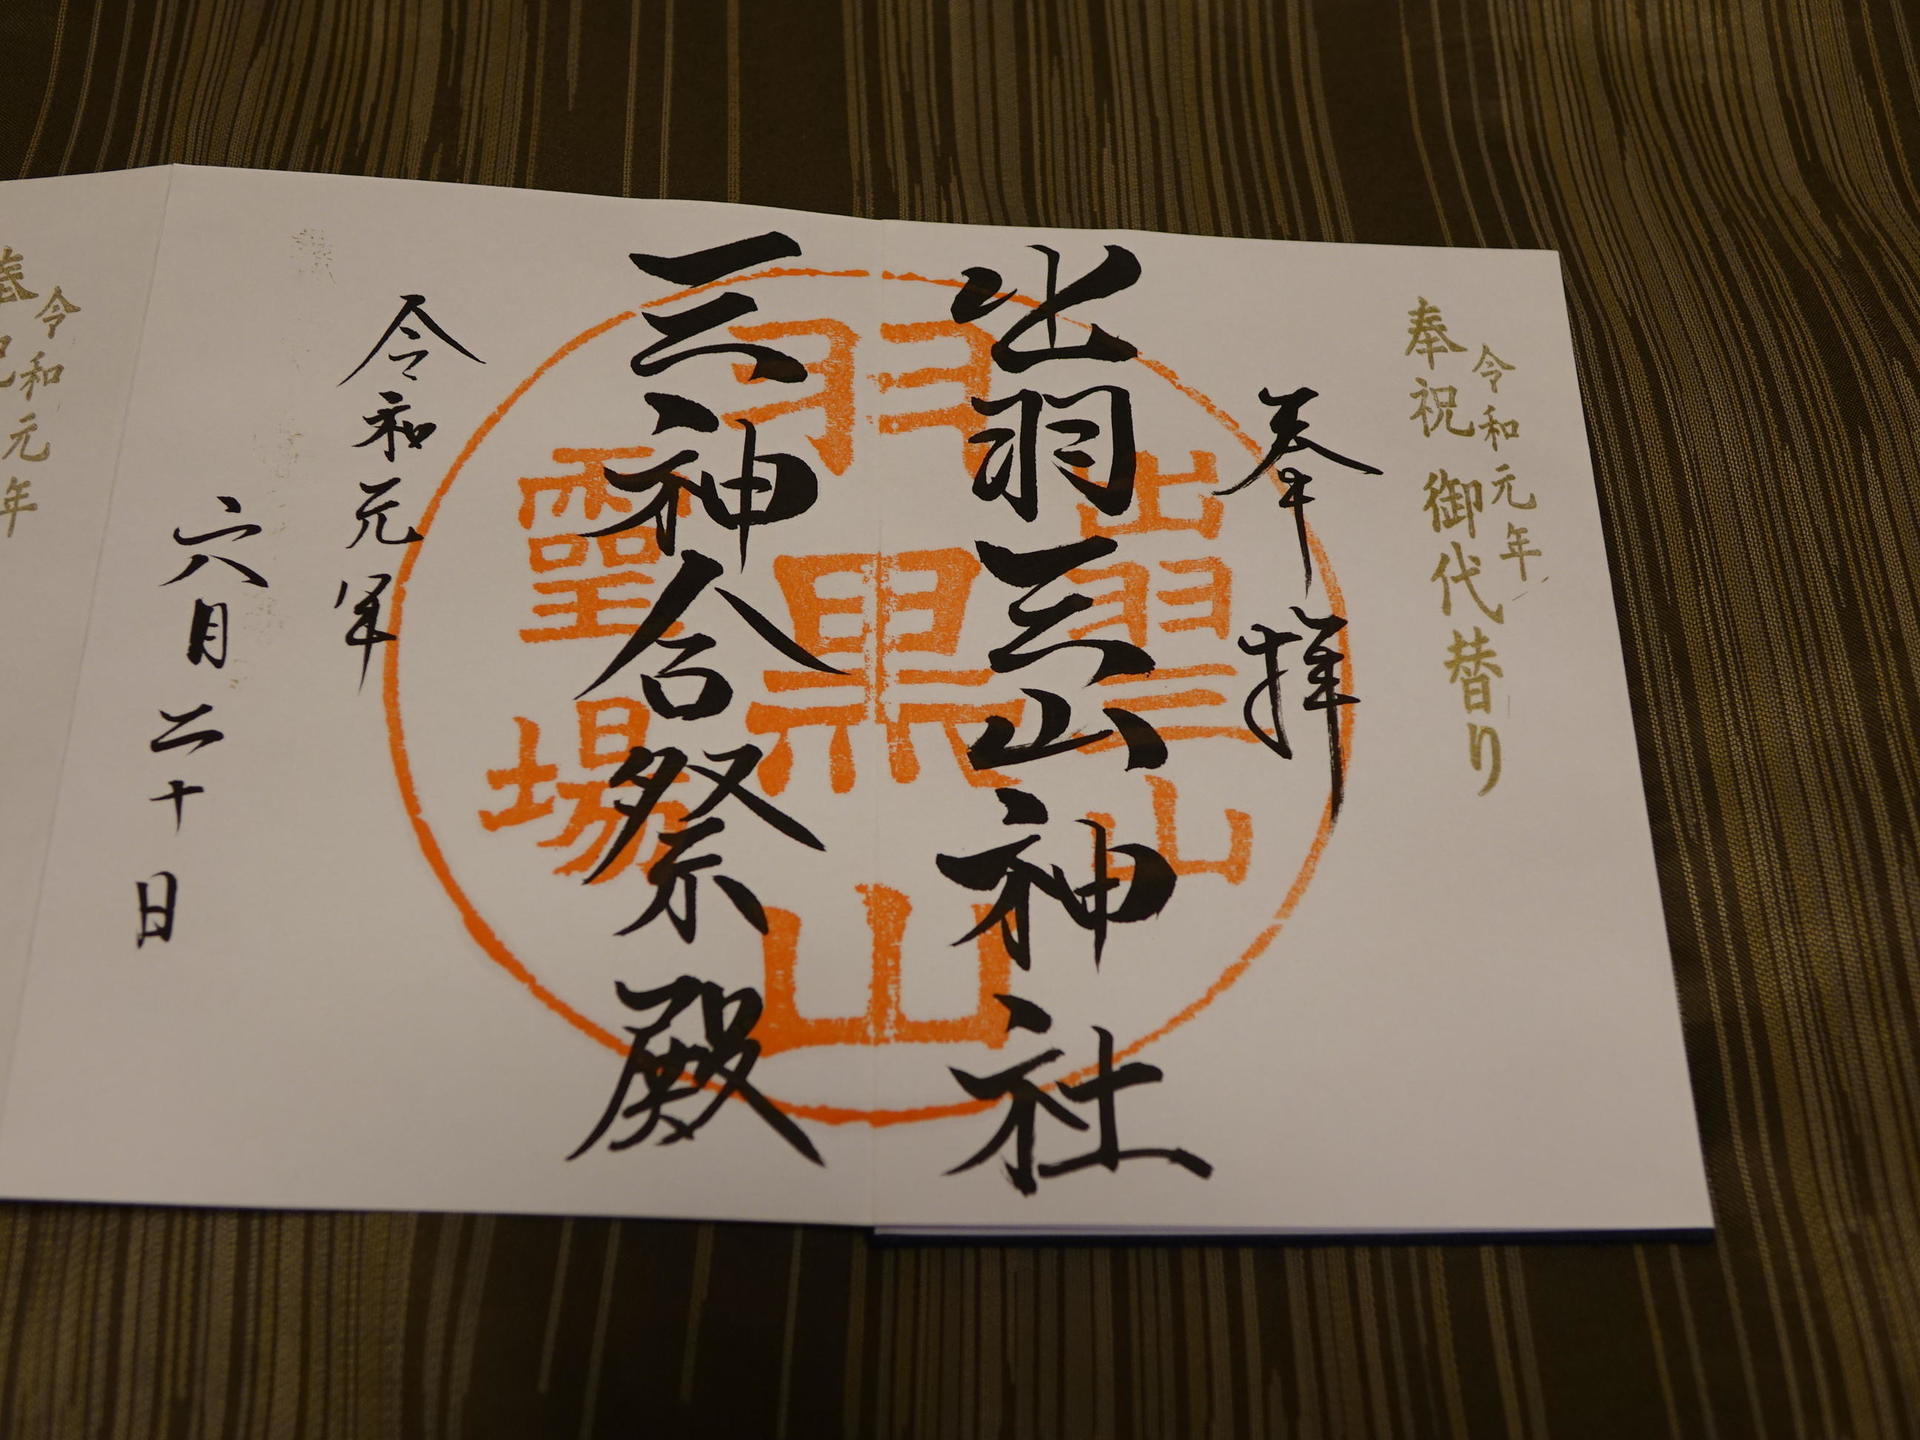 令和元年
奉祝 御代替り
奉拝
出羽三山神社
三神合祭殿
出羽三山
羽黒山
霊場
令和元年
六月二十日
令和元年
奉祝